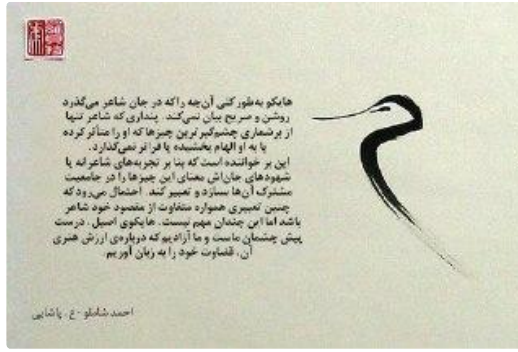 هایکو به‌طور کلی آن‌چه را که در جان شاعر می‌گذرد
روشن و صریح بیان نمی‌کند. پنداری که شاعر تنها
از برشماری چشم‌گیرترین چیزها که او را متأثر کرده
یا به او الهام بخشیده پا فراتر نمی‌گذارد.
این بر خواننده است که بنا بر تجربه‌های شاعرانه یا
شهودهای جان‌اش معنای این چیزها را در جامعیت
مشترک آن‌ها بسازد و تعبیر کند. احتمال می‌رود که
چنین تعبیری همواره متفاوت از مقصود خود شاعر
باشد اما این چندان مهم نیست. هایکوی اصیل، درست
پیش چشمان ماست و ما آزادیم که درباره‌ی ارزش هنری
آن، قضاوت خود را به زبان آوریم.
احمد شاملو - ع. پاشایی